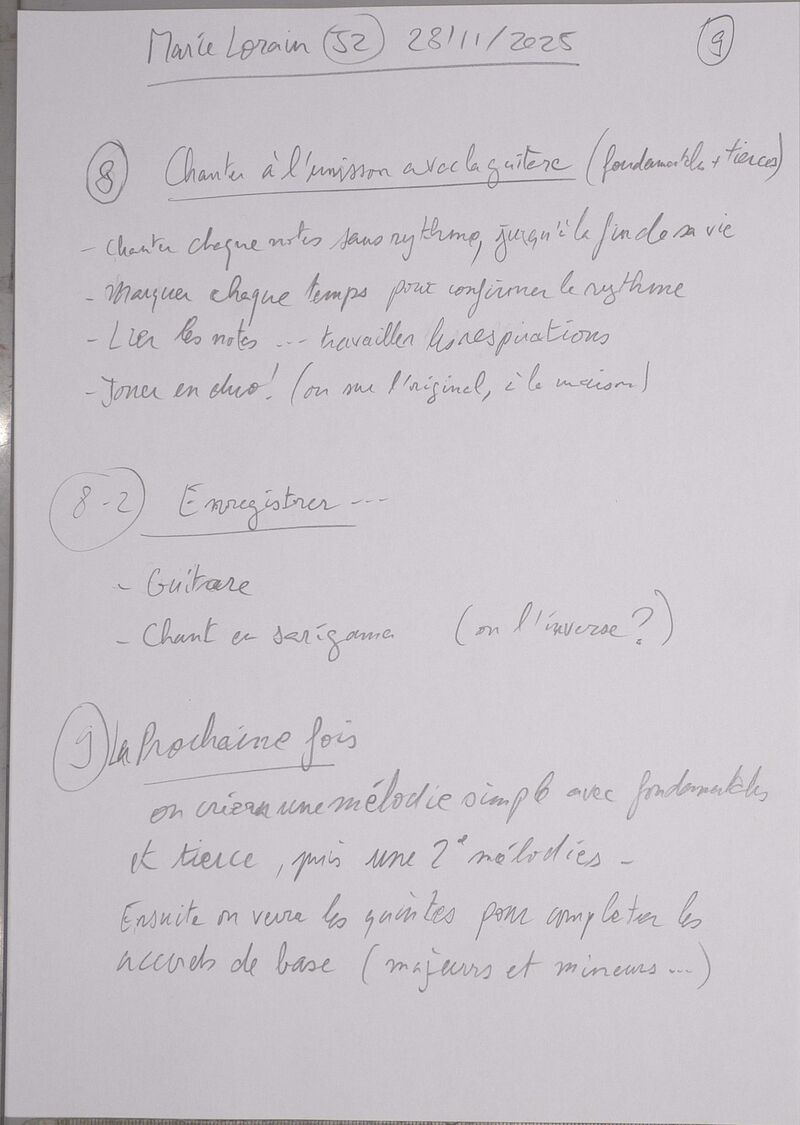 Marie Lorain (52) 28/11/2025 9
8 Chanter à l'unisson avec la guitare (fondamentales + tierces)
- Chanter chaque notes sans rythme, jusqu'à la fin de sa vie
- Marquer chaque temps pour confirmer le rythme
- Lier les notes ... travailler les respirations
- Jouer en duo! (ou sur l'original, à la maison)
8-2 Enregistrer ...
- Guitare
- Chant en sarigama (ou l'inverse?)
9 La Prochaine fois
on créera une mélodie simple avec fondamentales
et tierce, puis une 2e mélodies -
Ensuite on verra les quintes pour completer les
accords de base (majeurs et mineurs...)